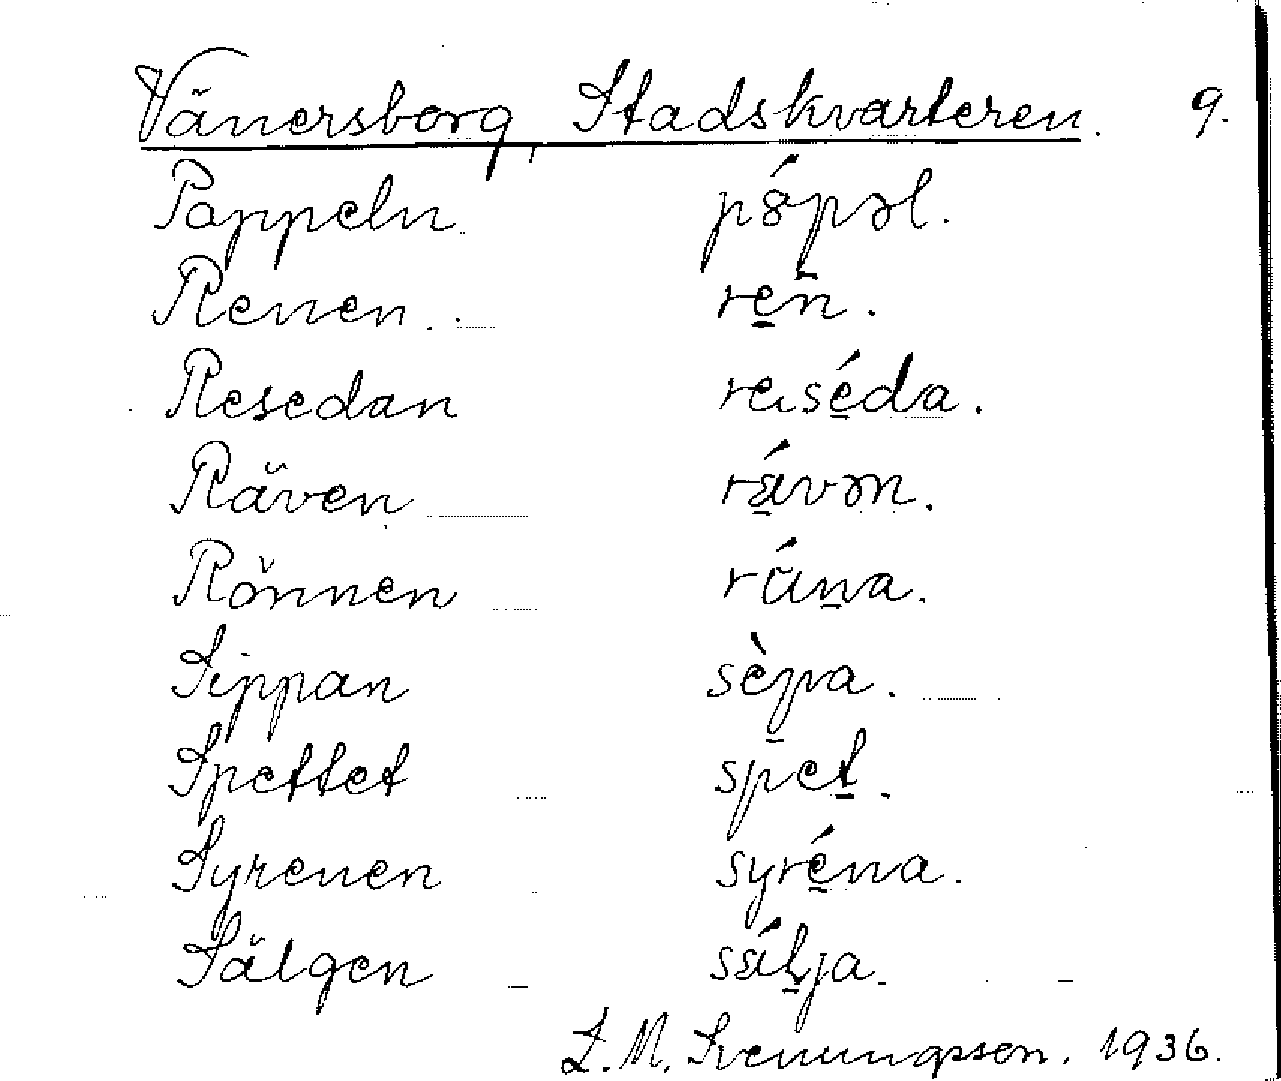 Vänersborg, Stadskvarteren. 9.
Pappeln.
Renen. ren.
Resedan reséda.
Räven
Rönnen
Sippan sèpa.
Spettet spet.
Syrenen syréna.
Sälgen
Svenungsson. 1936.